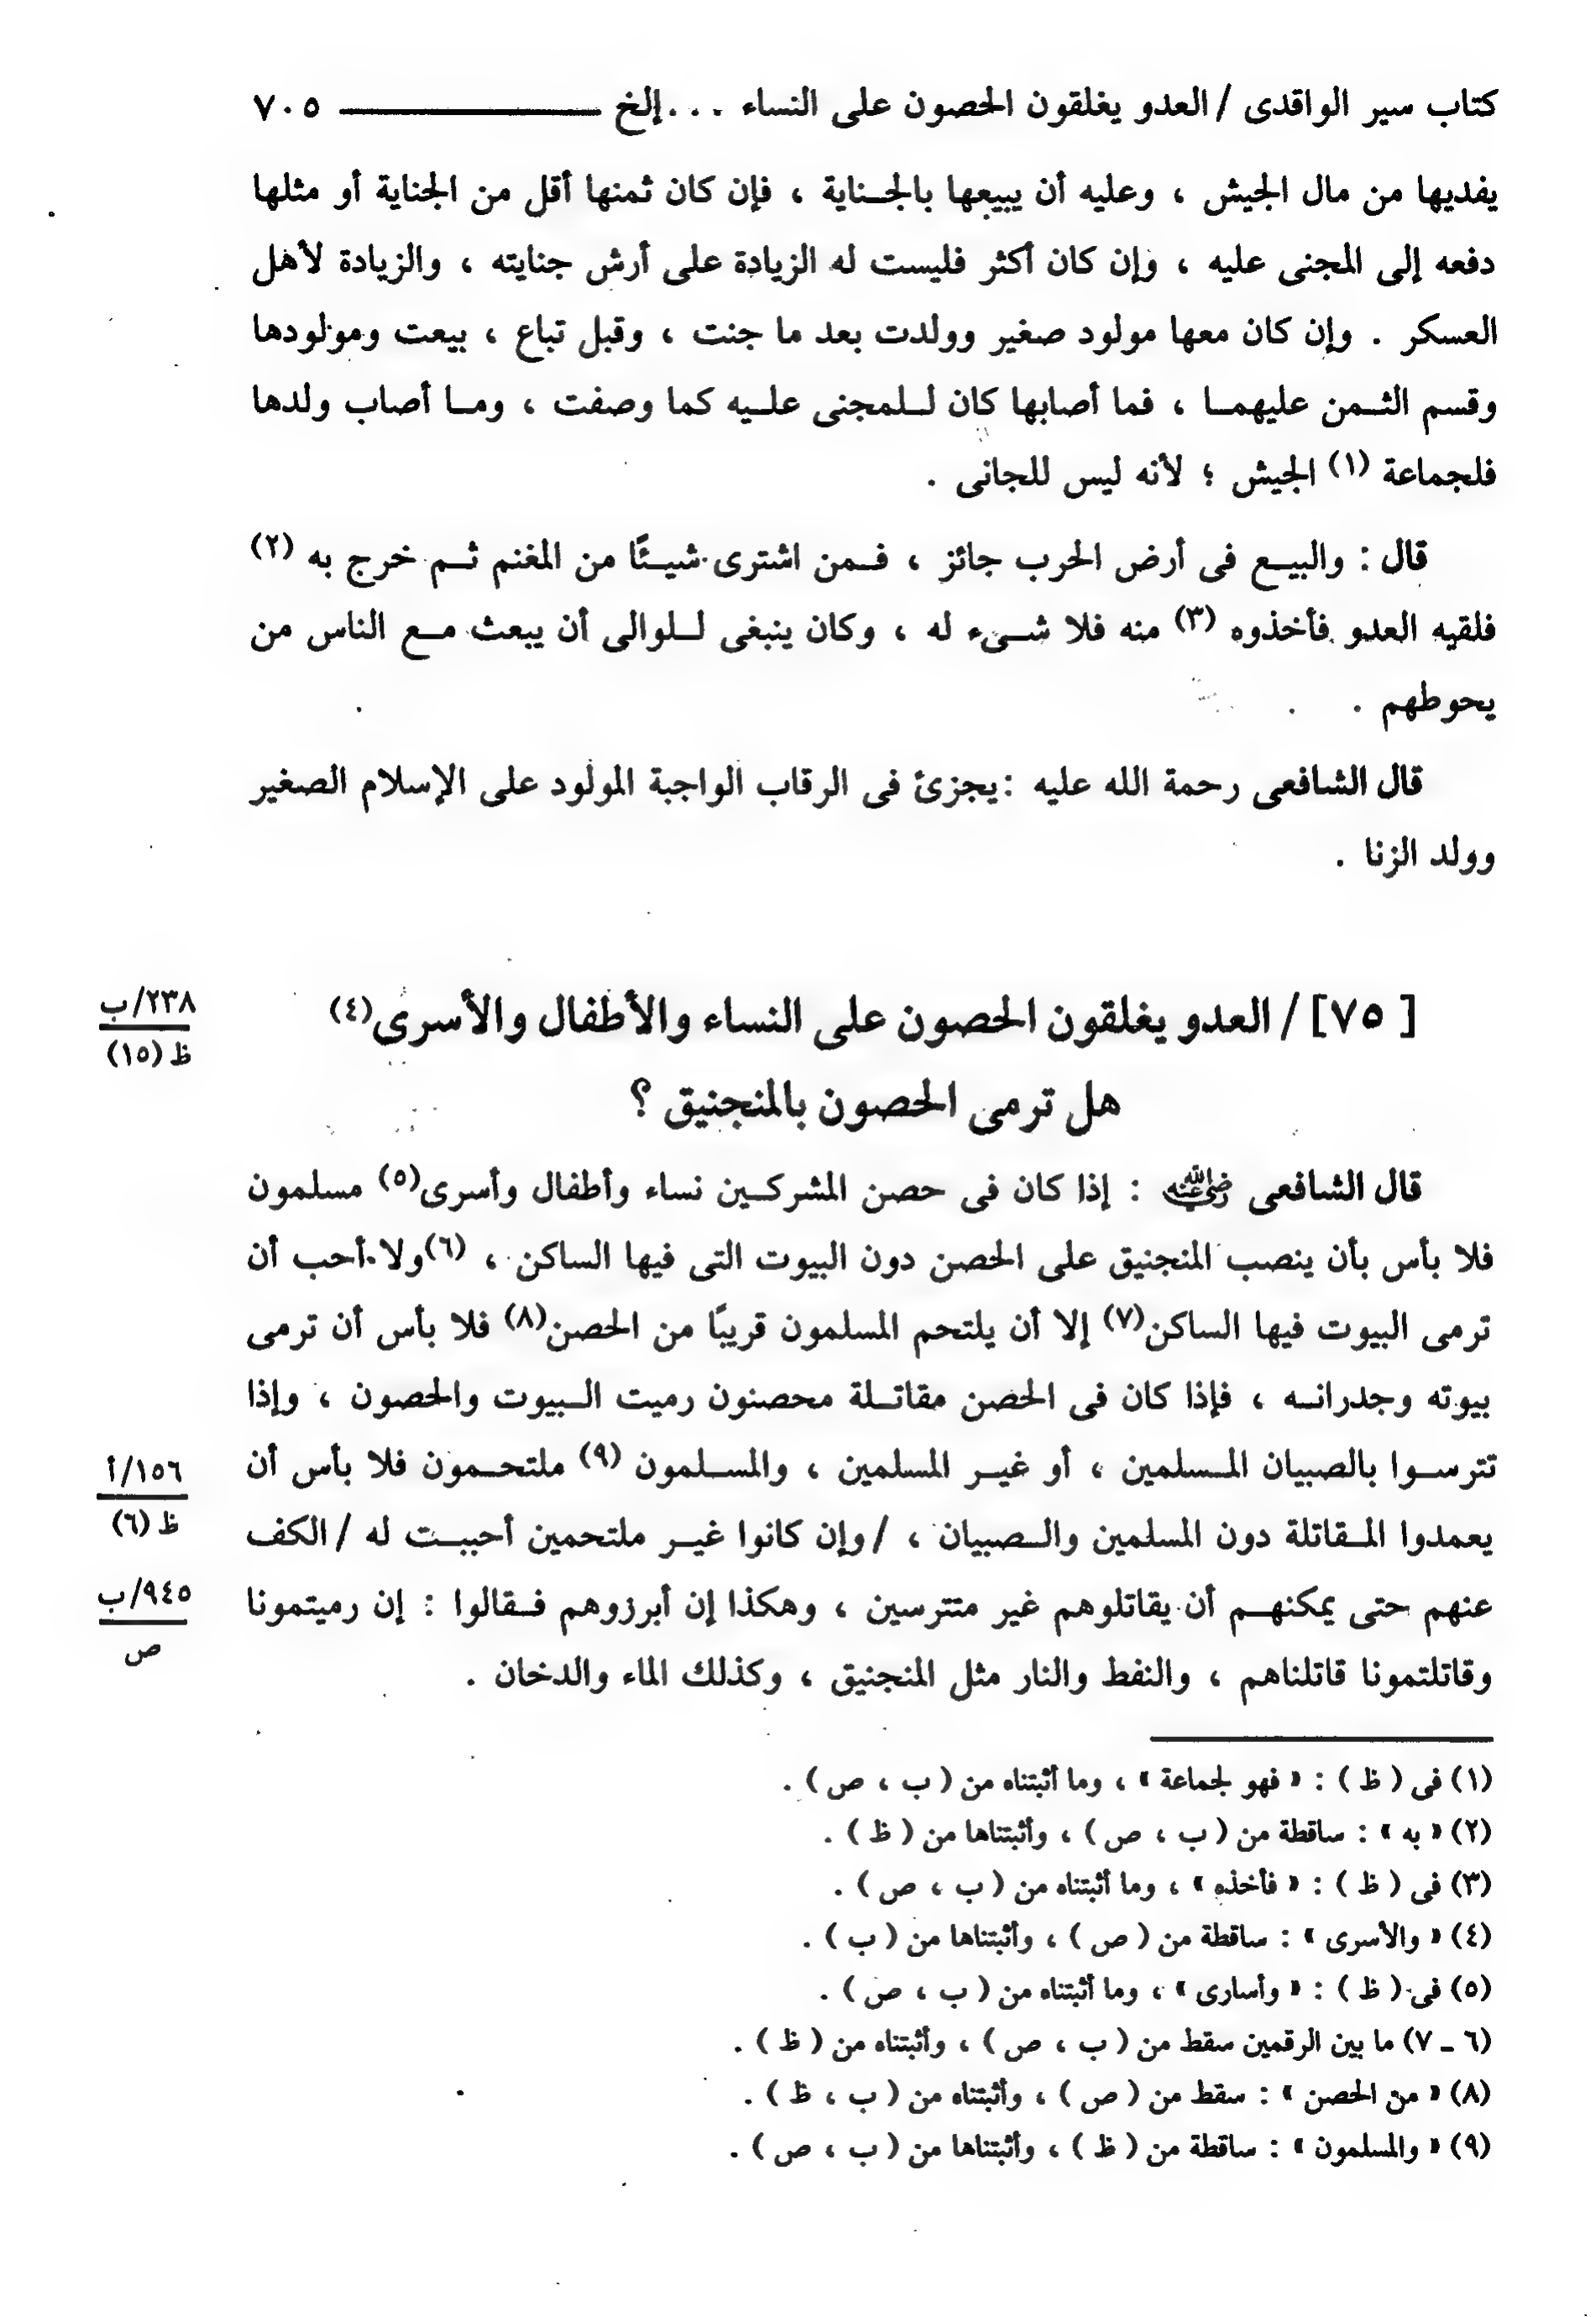 كتاب سير الواقدى / العدو يغلقون الحصون على النساء . . . إلخ ــــــــــ ٧٠٥
يفديها من مال الجيش ، وعليه أن يبيعها بالجــناية ، فإن كان ثمنها أقل من الجناية أو مثلها
دفعه إلى المجنى عليه ، وإن كان أكثر فليست له الزيادة على أرش جنايته ، والزيادة لأهل
العسكر . وإن كان معها مولود صغير وولدت بعد ما جنت ، وقبل تباع ، بيعت ومولودها
وقسم الثــمن عليهمــا ، فما أصابها كان لــلمجنى علــيه كما وصفت ، ومــا أصاب ولدها
فلجماعة (١) الجيش ؛ لأنه ليس للجانى .
قال : والبيــع فى أرض الحرب جائز ، فــمن اشترى شيــئًا من المغنم ثــم خرج به (٢)
فلقيه العدو فأخذوه (٣) منه فلا شــىء له ، وكان ينبغى لــلوالى أن يبعث مــع الناس من
يحوطهم .
قال الشافعى رحمة الله عليه : يجزئ فى الرقاب الواجبة المولود على الإسلام الصغير
وولد الزنا .
٢٣٨/ب
ظ (١٥)
[ ٧٥] / العدو يغلقون الحصون على النساء والأطفال والأسرى(٤)
هل ترمى الحصون بالمنجنيق ؟
قال الشافعى رضي الله عنه : إذا كان فى حصن المشركــين نساء وأطفال وأسرى(٥) مسلمون
فلا بأس بأن ينصب المنجنيق على الحصن دون البيوت التى فيها الساكن ، (٦)ولا أحب أن
ترمى البيوت فيها الساكن(٧) إلا أن يلتحم المسلمون قريبًا من الحصن(٨) فلا بأس أن ترمى
بيوته وجدرانــه ، فإذا كان فى الحصن مقاتــلة محصنون رميت الــبيوت والحصون ، وإذا
تترســوا بالصبيان المــسلمين ، أو غيــر المسلمين ، والمســلمون (٩) ملتحــمون فلا بأس أن
يعمدوا المــقاتلة دون المسلمين والــصبيان ، / وإن كانوا غيــر ملتحمين أحببــت له / الكف
عنهم حتى يمكنهــم أن يقاتلوهم غير متترسين ، وهكذا إن أبرزوهم فــقالوا : إن رميتمونا
وقاتلتمونا قاتلناهم ، والنفط والنار مثل المنجنيق ، وكذلك الماء والدخان .
١٥٦/أ
ظ (٦)
٩٤٥/ب
ص
(١) فى ( ظ ) : « فهو لجماعة » ، وما أثبتناه من ( ب ، ص ) .
(٢) « به » : ساقطة من ( ب ، ص ) ، وأثبتناها من ( ظ ) .
(٣) فى ( ظ ) : « فأخذه » ، وما أثبتناه من ( ب ، ص ) .
(٤) « والأسرى » : ساقطة من ( ص ) ، وأثبتناها من ( ب ) .
(٥) فى ( ظ ) : « وأسارى » ، وما أثبتناه من ( ب ، ص ) .
(٦ ـ ٧) ما بين الرقمين سقط من ( ب ، ص ) ، وأثبتناه من ( ظ ) .
(٨) « من الحصن » : سقط من ( ص ) ، وأثبتناه من ( ب ، ظ ) .
(٩) « والمسلمون » : ساقطة من ( ظ ) ، وأثبتناها من ( ب ، ص ) .